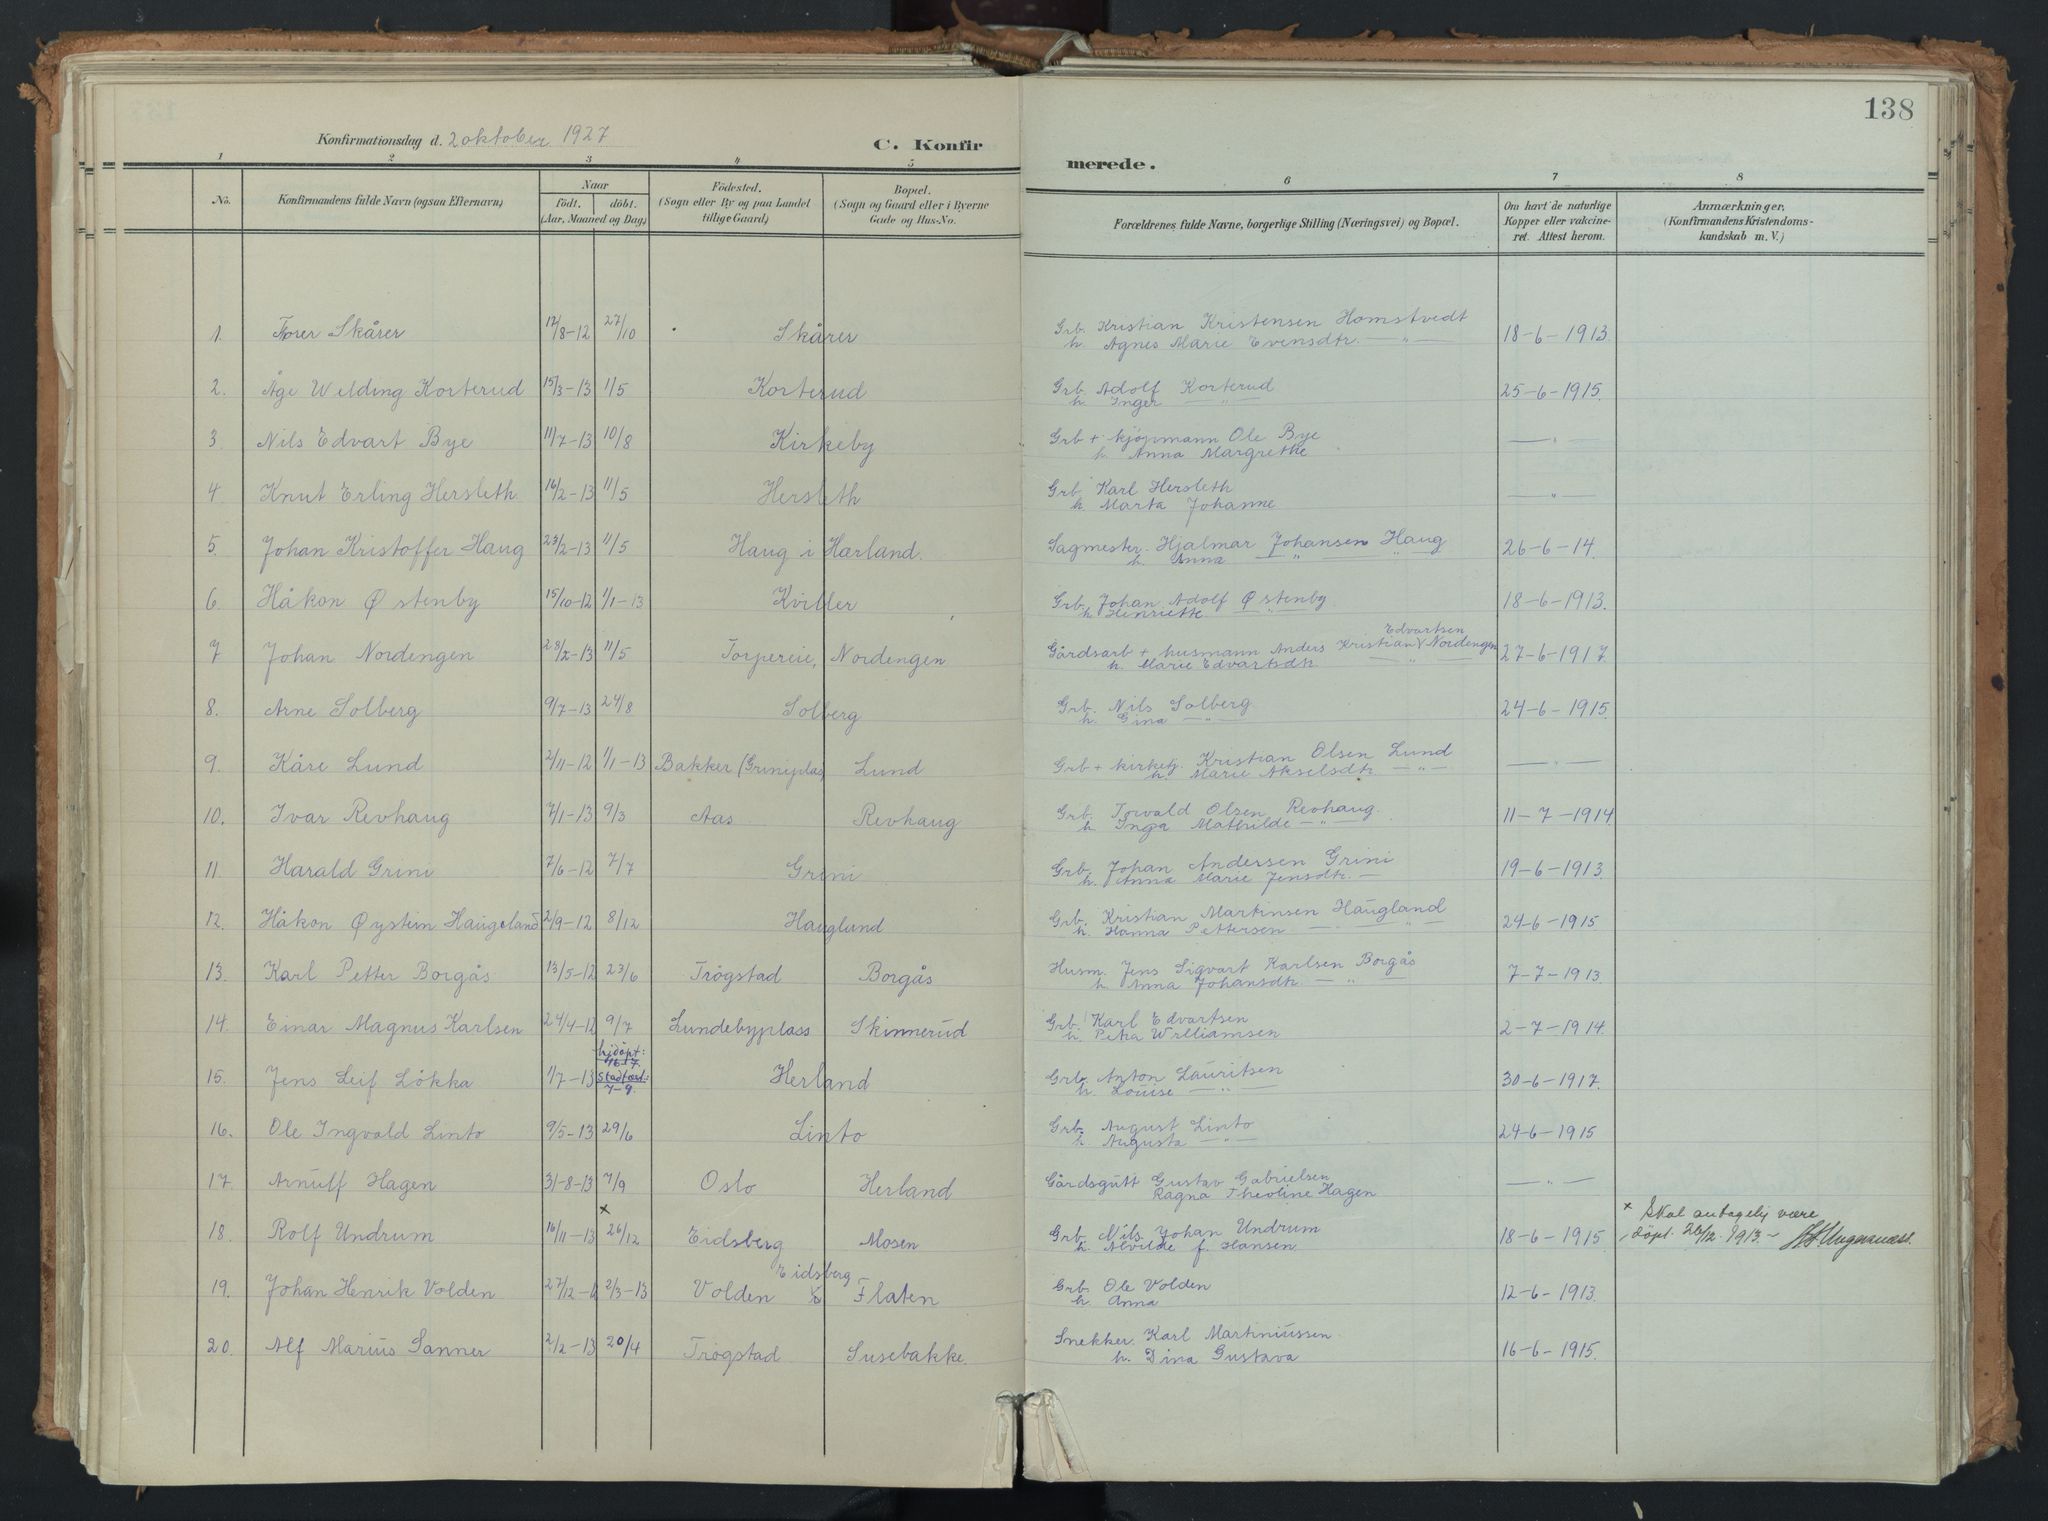 138
Konfirmationsdag d. 2 oktober 1927
C. Konfirmerede.
1 2 3 4 5 6 7 8
No. Konfirmandens fulde Navn (ogsaa Efternavn) Naar Födested. Bopæl.
födt. döbt. (Sogn eller By og paa Landet (Sogn og Gaard eller i Byerne
(Aar, Maaned og Dag) tillige Gaard) Gade og Hus-No.
Forældrenes fulde Navne, borgerlige Stilling (Næringsvei) og Bopæl.
Om havt de naturlige
Kopper eller vakcine-
ret. Attest herom.
Anmærkninger,
(Konfirmandens Kristendoms-
kundskab m. V.)
1. Torer Skårer 17/8-12 27/10 Skårer Grb. Kristian Kristensen Homstvedt 18-6-1913.
h. Agnes Marie Evensdtr. —"—
2. Åge Welding Korterud 15/3-13 1/5 Korterud Grb. Adolf Korterud 25-6-1915.
h. Inger —"—
3. Nils Edvart Bye 11/7-13 10/8 Kirkeby Grb + kjöpmann Ole Bye —"—
h. Anna Margrethe
4. Knut Erling Hersleth 16/2-13 11/5 Hersleth Grb. Karl Hersleth —"—
h. Marta Johanne
5. Johan Kristoffer Haug 23/2-13 11/5 Haug i Hærland. Sagmester. Hjalmar Johansen Haug 26-6-14.
h. Anna —"— —"—
6. Håkon Østenby 15/10-12 1/1-13 Kviller Grb. Johan Adolf Østenby 18-6-1913.
h. Henriette —"—
Edvartsen
7 Johan Nordengen 11/5 Torpereie, Nordengen Gårdsarb + husmann Anders Kristian V Nordengen 27-6-1917.
h. Marie Edvartsdtr. —"—
8. Arne Solberg 9/7-13 24/8 Solberg Grb. Nils Solberg 24-6-1915.
h. Gina —"—
9. Kåre Lund 2/11-12 1/1-13 Bakker (Griniplas) Lund Grb + kirketj. Kristian Olsen Lund —"—
h. Marie Akselsdtr —"—
10. Ivar Revhaug 7/1-13 9/3 Aas Revhaug Grb. Torvald Olsen Revhaug. 11-7-1914
h. Inga Mathilde —"—
11 Harald Grini 7/6-12 7/7 Grini Grb. Johan Andersen Grini 19-6-1913.
h. Anna Marie Jensdtr. —
12. Håkon Øystein Haugeland 2/9-12 8/12 Hauglund Grb. Kristian Martinsen Haugland 24-6-1915.
h. Hanna Pettersen —"—
13. Karl Petter Borgås 13/5-12 23/6 Trögstad Borgås Husm. Jens Sigvart Karlsen Borgås 7-7-1913
h. Anna Johansdtr. —"—
14. Einar Magnus Karlsen 24/4-12 9/7 Lundebyplass Skinnerud Grb. Karl Edvartsen 2-7-1914.
h. Petra Williamsen
hjdöpt:
15. Jens Leif Lökka 1/7-13 Stadfæst: 7-9. Herland Grb. Anton Lauritsen 30-6-1917.
h. Louise —"—
16. Ole Ingvald Linto 9/5-13 29/6 Linto Grb. August Linto 24-6-1915
h. Augusta —"—
17. Arnulf Hagen 31-8-13 7/9 Oslo Herland Gårdsgutt Gustav Gabrielsen —"—
Ragna Theoline Hagen
18. Rolf Undrum 16/11-13 x 26/12 Eidsberg Mosen Grb. Nils Johan Undrum 18-6-1915. x Skal antagelig være
h. Alvilde f. Hansen döpt 26/12. 1913.-
Eidsberg
19. Johan Henrik Volden 2/3-13 Volden Flaten Grb. Ole Volden 12-6-1913.
h. Anna
20. Alf Marius Sanner 2/2-13 20/4 Trögstad Susebakke. Snekker. Karl Martiniussen 16-6-1915.
h. Dina Gustava